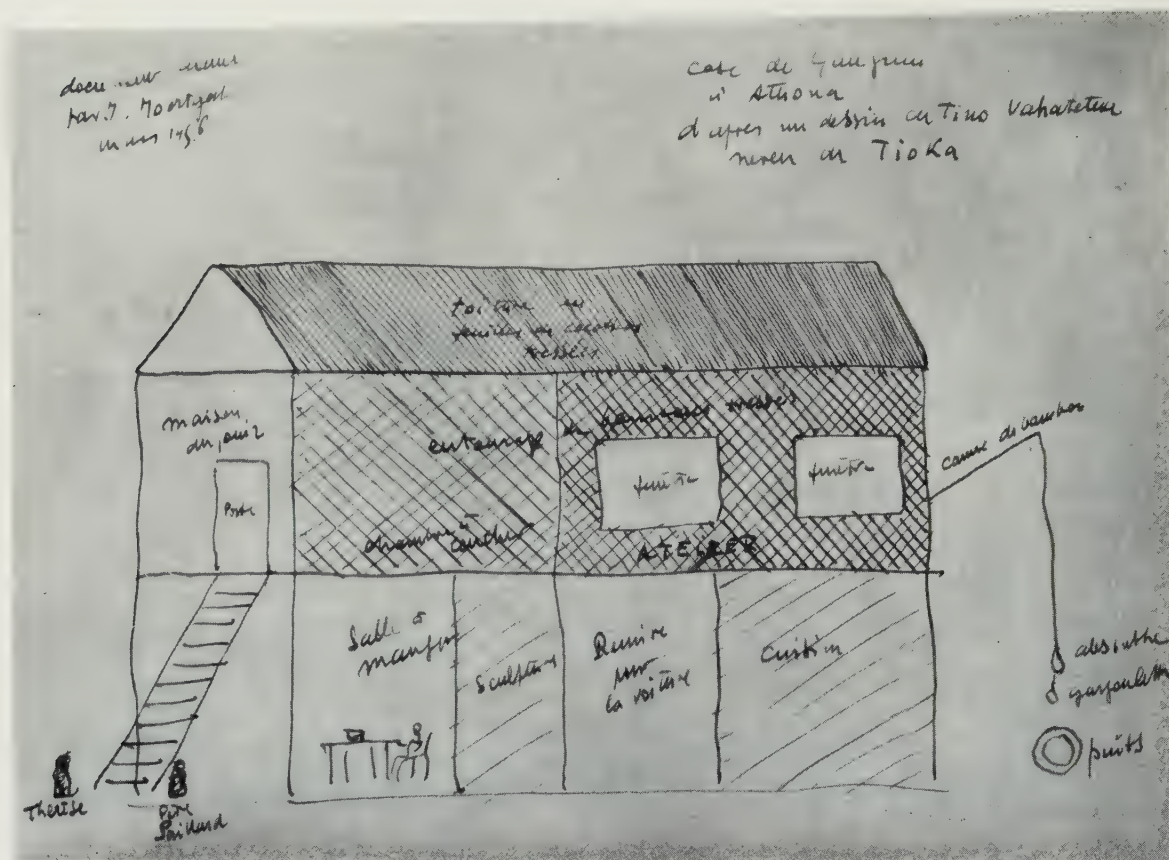 par J.
mars
case de
à Atuona
d'apres un dessin de Timo Vahatetua
neveu de Tioka
toiture en
feuilles de cocotier
tressées
maison
du jouir
Porte
entourage en bambous tressés
fenêtre
fenêtre
chambre à
coucher
ATELIER
canne de bambou
Salle à
manger
Sculpture
Remise
pour
la voiture
Cuisine
absinthe
gargoulette
puits
Thérèse
Père
Paillard